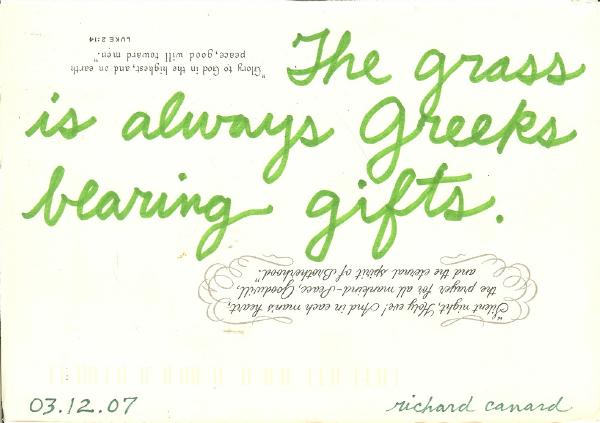 The grass
is always Greeks
bearing gifts.
"Glory to God in the highest, and on earth
peace, good will toward men."
LUKE 2:14
"Silent night, Holy eve! And in each man's heart,
the prayer for all mankind–Peace, Goodwill,
and the eternal spirit of Brotherhood."
03.12.07
richard canard